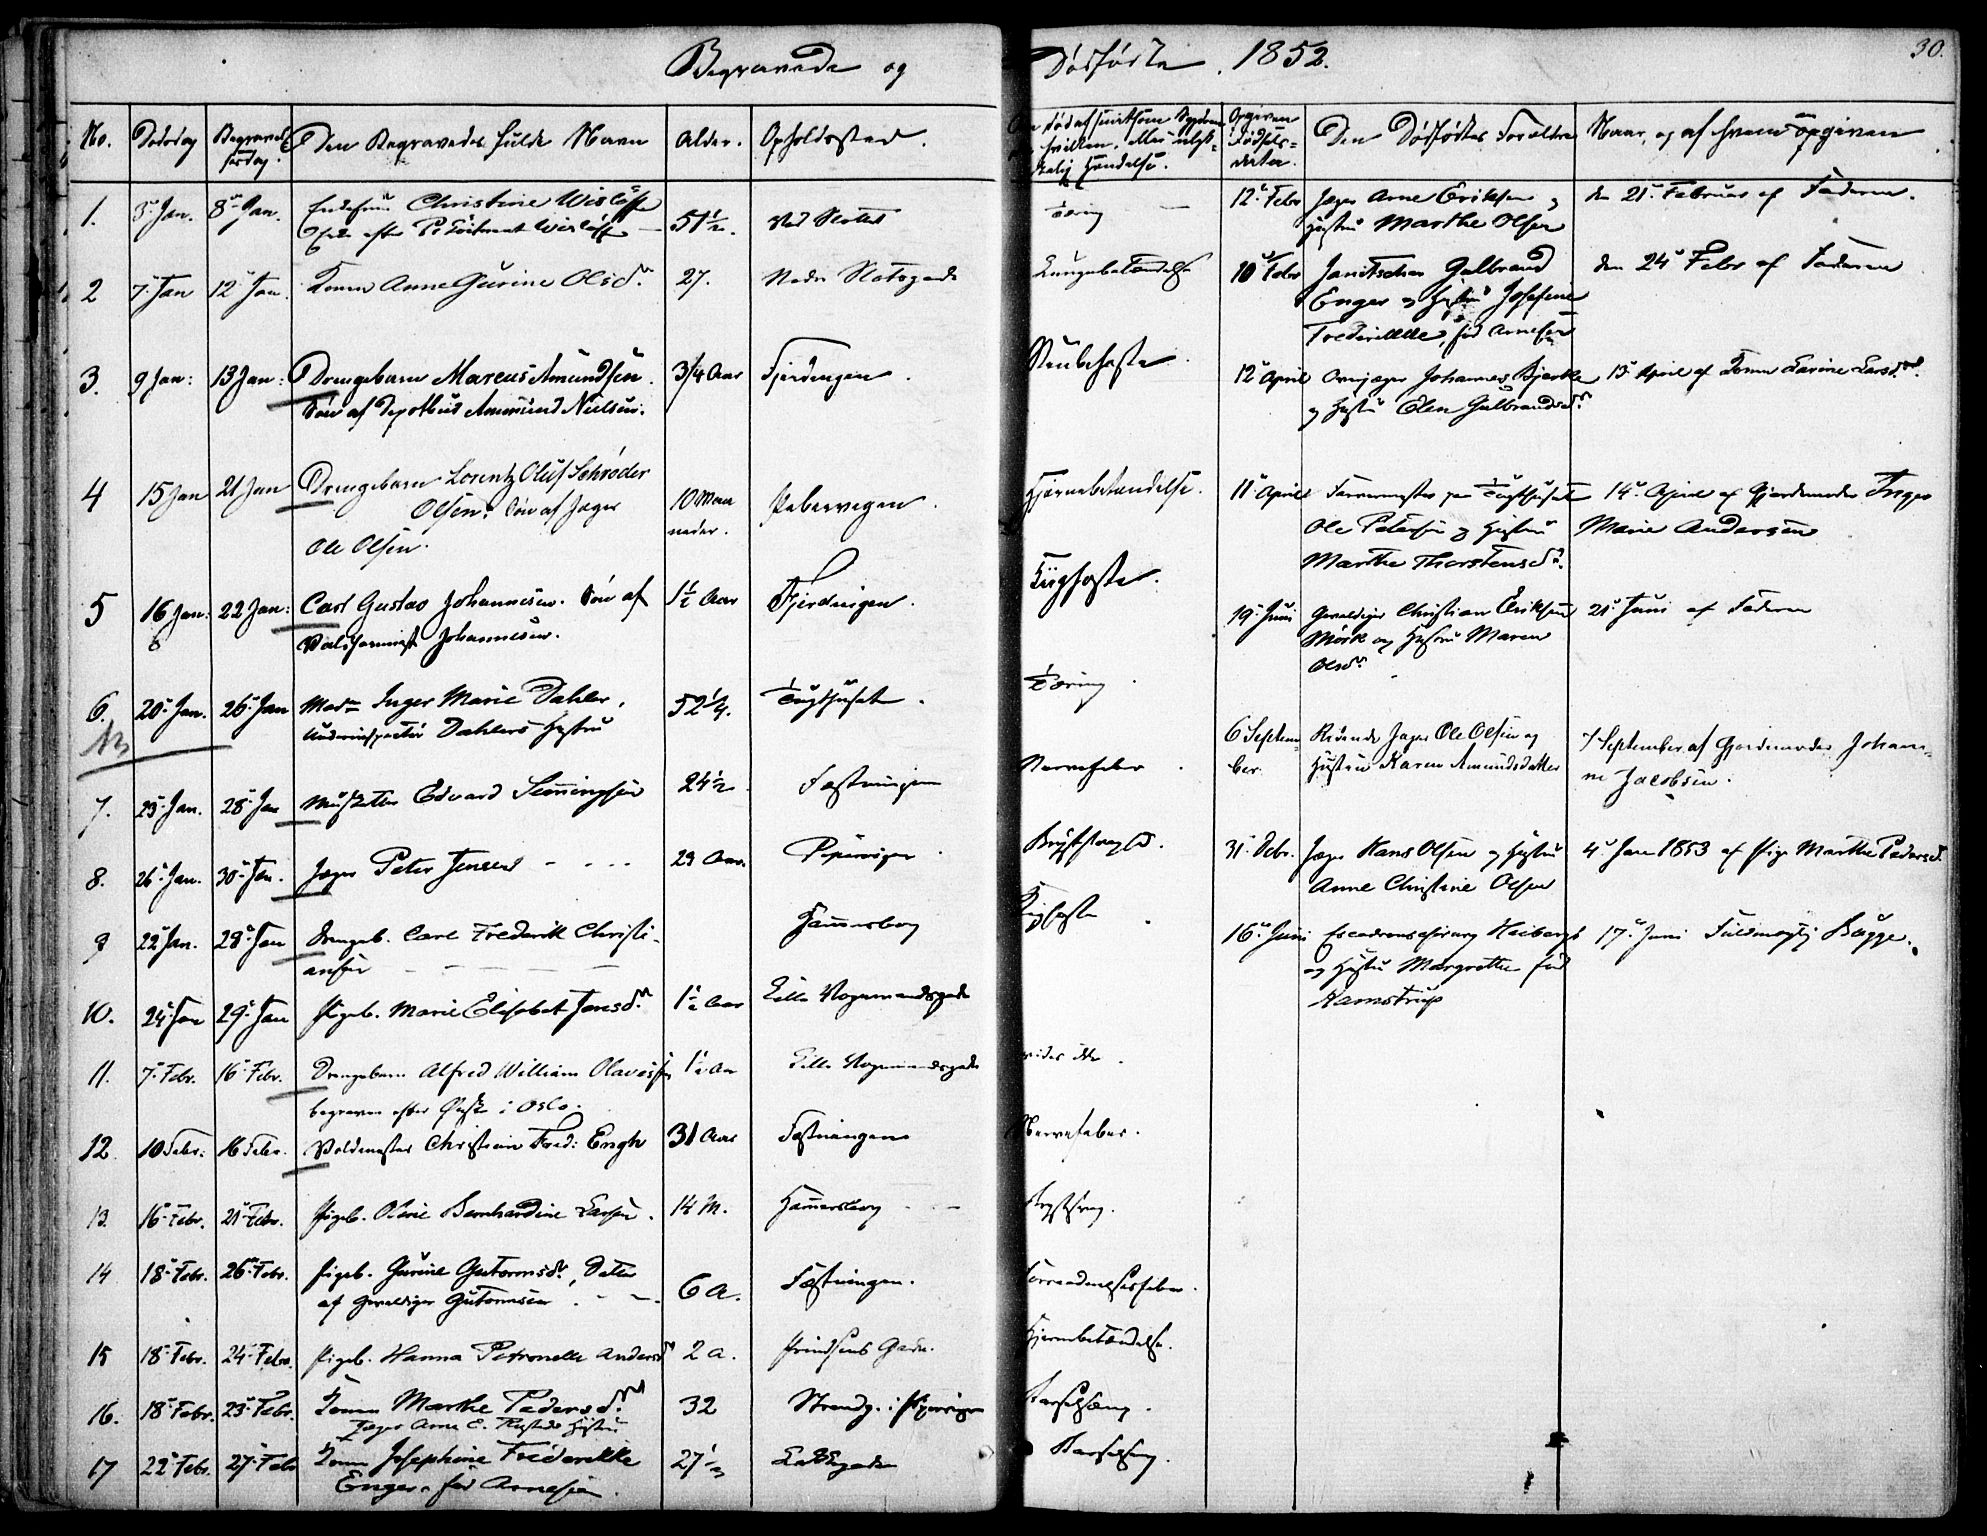 Begravede og
Dødfødte. 1852.
30.
No. Dødsdag Begravelsesdag. Den Begravedes fulde Navn Alder. Opholdssted.
død af smitsom Sygdom Opgiven Den Dødfødtes Forældre Naar, og af hvem opgiven
hvilken, eller ulyk- Fødsels-
kelig Hændelse. datum.
1. 3 Jan. 8 Jan. Christine Wisløff
51½. Ved Slottet
Tæring
2 7 Jan 12 Jan. Konen Anne Gurine Olsd. 27. Nedre Slotsgade
Lungebetændelse
3. 9 Jan: 13 Jan: Drengebarn Marcus Amundsen. 3/4 Aar Fjerdingen.
Søn af Amund Nielsen.
Strubehoste.
4 15 Jan 21 Jan Drengebarn Lorentz Oluf Schrøder
Olsen. Søn af Jæger 10 Maa Pebervigen.
Ole Olsen. neder.
Hjernebetændelse.
5 16 Jan: 22 Jan: Carl Gustav Johannesen. Søn af 1½ Aar Fjerdingen.
Johannesen.
Kighoste.
6. 20 Jan. 26 Jan Mad. Inger Marie Dahler, 52¼. Tugthuset.
Underinspecteur Dahlers Hustru
Tæring.
7. 23 Jan. 28 Jan Musketer Edvard Semmingsen 24½ Fæstningen
Nervefeber.
8. 26 Jan. 30 Jan. Jæger Peter Jensen 29 Aar. Pipervigen.
Brystsyg.
9 22 Jan. 28 Jan Drengeb. Carl Frederik Christi- Hammersborg
ansen
Kighoste.
10. 24 Jan 29 Jan Pigeb. Marie Elisabet Jensd. 1½ Aar Lille Vognmandsgade
11. 7 Febr. 16 Febr. Drengebarn Alfred William Olavesen 1½ Aar Lille Vognmandsgade
begraven efter i Oslo.
vides ikke.
12. 10 Febr. 16 Febr. Voldmester Christian Fred: Engh 31 Aar Fæstningen
Nervefeber.
13 16 Febr. 21 Febr. Pigeb. Olevie Bernhardine Larsen. 14 M. Hammersborg
14 18 Febr. 26 Febr. Pigeb. Gurine Gutormsd., Datter
af Gevaldiger Gutormsen. 6 A. Fæstningen.
Forraadnelsesfeber.
15 18 Febr. 24 Febr. Pigeb. Hanna Petronelle Andersd 2 A. Prindsens Gade.
Hjernebetændelse.
16. 18 Febr. 23 Febr. Konen Marthe Pedersd. 32 Strandg. i Pipervigen
Jæger Arne E. Hustru
Barselseng.
17 22 Febr. 27 Febr Konen Josephine Frederikke 27½
Enger, fød Arnesen.
Barselseng.
12 Febr Jæger Arne Eriksen og den 21 Februar af Faderen.
Hustru Marthe Olsen
10 Febr Janitschar Gulbrand den 24 Febr af Faderen
Enger og Hustru Josefine
Frederikke, fød Arnesen
12 April Johannes Bjerke 13 April af Konen Karine Larsd.
og Hustru Olen Gulbrandsd.
11 April Farvemester paa Tugthuset 14 April af Gjordemoder Inger
Ole Petersen og Hustru Marie Andersen
Marthe Thorstensd.
19 Juni Gevaldiger Christian Eriksen 21 Juni af Faderen
Mörk og Hustru Maren
Olsd.
6 Septem- Ridende Jæger Ole Olsen og 7 September af Gjordemoder Johan-
ber Hustru Karen Amundsdatter ne Jacobsen.
31 Debr. Jæger Hans Olsen og Hustru 4 Jan 1853 af Pige Marthe Pedersd.
Anne Christine Olsen
16 Juni Escadronschirurg Heibergs 17 Juni Fuldmægtig Bugge.
og Hustru Margrethe fød
Kamstrup